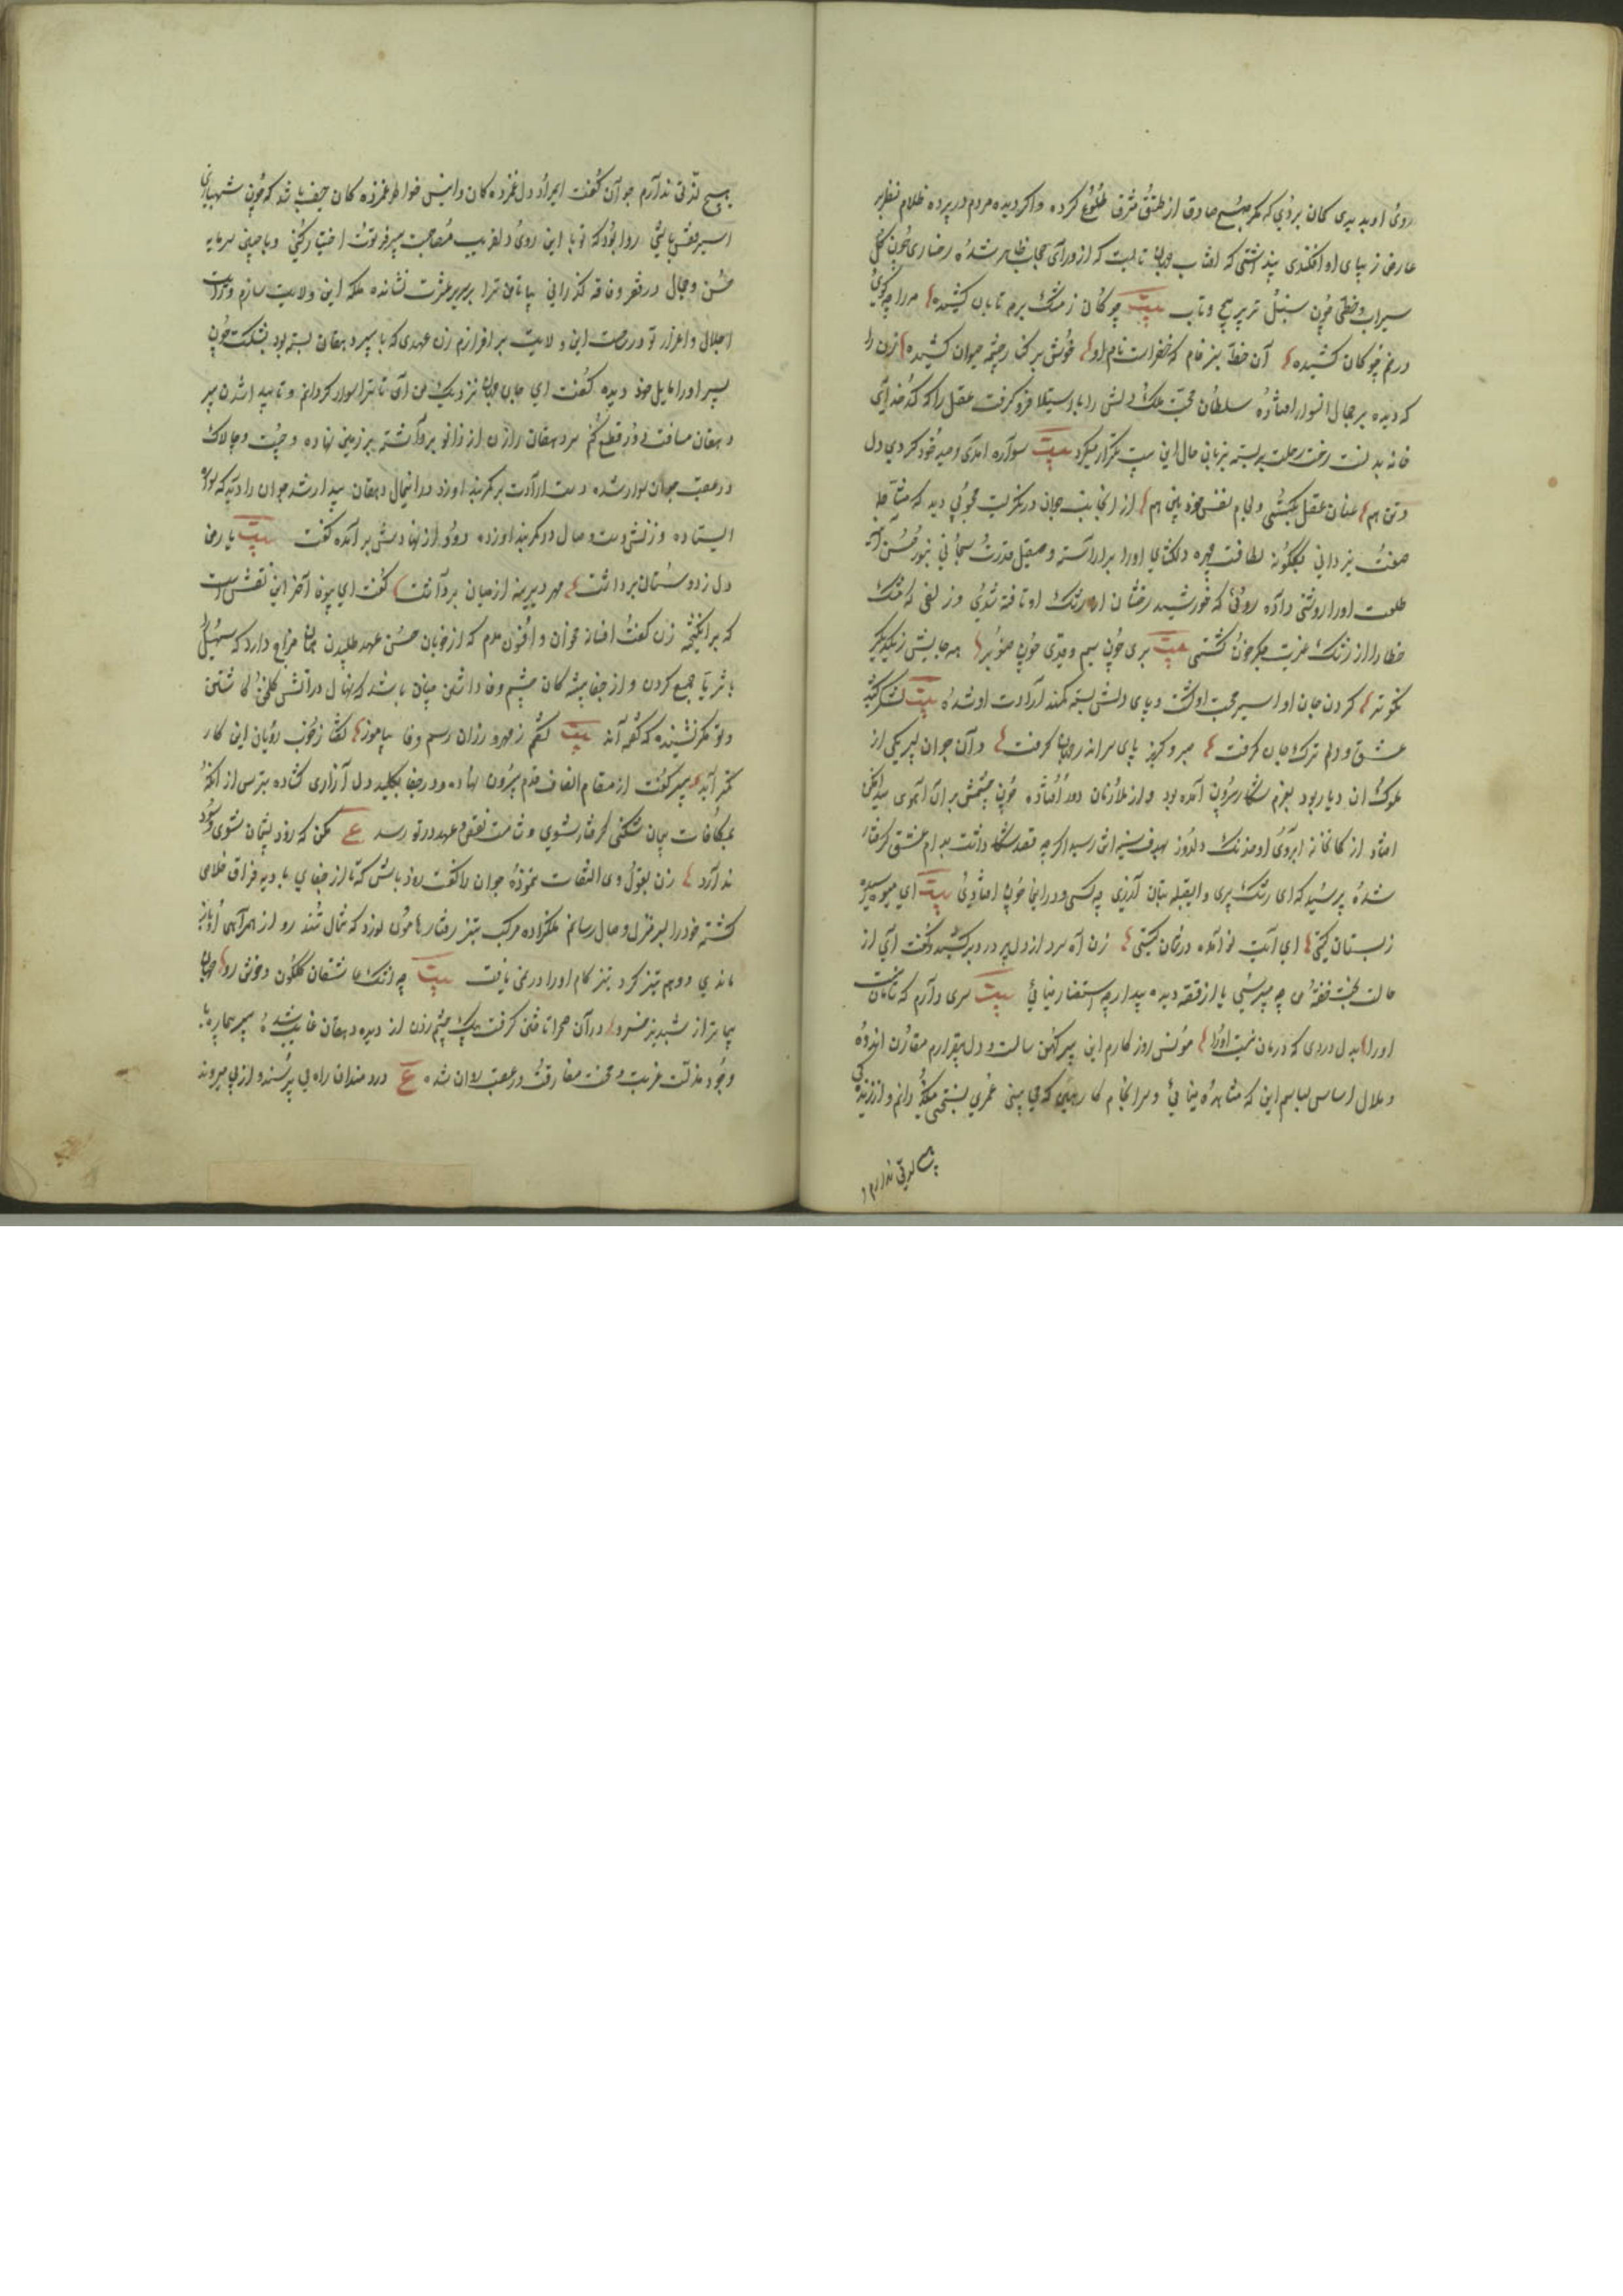 روی او بدیدی کان بردی که مگر صبح صادق از طبق مشرق طلوع کرده و اگر دیده مردم در پرده ظلام نظر بر
عارض زیبای او افکندی پنداشتی که افتاب جهان تابست که از ورای حجاب ظاهر شده رخساری چون گل
سیراب و خطی چون سنبل تر پر پیچ و تاب بیت چوگان ز مشک بر مه تابان کشیده مه را چو گوی
در خم چوگان کشیده آن خط سبز فام که خضر است نام او خوش بر کنار چشمه حیوان کشیده زن را
که دیده بر جمال انسوار افتاد سلطان محبت ملک دلش را باستیلا فرو گرفت عقل را که کدخدای
خانه بدنست رخت رحلت بربسته بزبان حال این بیت تکرار میکرد بیت سواره امدی و صید خود کردی دل
و تن هم عنان عقل بگسستی و لجام نفس هم از انجانب جوان درنگریست محبوبی دید که مشاطه
صنعت یزدانی بگلگونه لطافت چهره دلگشای اورا براراسته و صیقل قدرت سبحانی بنور حسن آینه
طلعت اورا روشنی داده روئی که خورشید رخشان از رشک او تافته شدی و زلفی که مشک
خطا را از رشک غیرت جگر خون گشتی بیت بری چون سیم و قدی چون صنوبر همه جایش ز یکدیگر
نکوتر گردن جان او اسیر محبت او گشت و پای دلش بسته کمند ارادت او شده بیت لشکر کشید
عشق و دلم ترک جان گرفت صبر گریز پای سر اندر جهان گرفت و آن جوان پسر یکی از
ملوک ان دیار بود بعزم شکار بیرون آمده بود و از ملازمان دور افتاده چون چشمش بر ان آهوی صید افکن
افتاد از کمانخانه ابروی او خدنک دلدوز بهدف سینه اش رسید اگر چه قصد شکار داشت بدام عشق گرفتار
شده پرسید که ای رشک پری و ای قبله بتان آزری چه کسی و در اینجا چون افتادی بیت ای میوه رسیده
ز بستان کیستی ای آیت نو آمده در شان کیستی زن آه سرد از دل پر درد برکشید و گفت ای از
حالت بخت خفته من چه میپرسی یا از قصه دیده بیدار چه استفسار مینمائی بیت سری دارم که سامان نیست
اورا بدل دردی که درمان نیست اورا مونس روزگارم این پیر کهن سالست و دل بیقرارم مقارن اندوه
و ملال اساس لباسم این که مشاهده مینمائی و سرانجام کار من همین که می بینی عمری بسختی میگذرانم و از زندگی
هیچ لذتی ندارم
هیچ لذتی ندارم جوان گفت ای مراد دل غمزدگان و انیس خواطر غمزدگان حیف باشد که چون شهبازی
اسیر قفس باشی روا بود که تو با این روی دلفریب مصاحبت پیر فرتوت اختیار کنی و با چنین سرمایه
حسن و جمال در فقر و فاقه گذرانی بیا تا من ترا بر سریر عشرت نشانده ملکه این ولایت سازم و رایت
اجلال و اعزاز تو در عرصه این ولایت برافرازم زن عهدی که با پیر دهقان بسته بود بشکست چون
پسر اورا مایل خود دیده گفت ای جان جهان نزدیک من آی تا ترا سوار گردانم و تا بیدار شدن پیر
دهقان مسافت دور قطع کنم سر دهقان را زن از زانو برداشته بر زمین نهاده و چست و چالاک
در عقب جوان سوار شده دست ارادت بر کمربند او زد در انحال دهقان بیدار شد جوان را دید که سواره
ایستاده و زنش دست وصال در کمربند او زده دود از نهادش برآمده گفت بیت یار من
دل ز دوستان برداشت مهر دیرینه از میان برداشت گفت ای بیوفا آخر این نقش است
که برانگیختی زن گفت افسانه مخوان و افسون مدم که از خوبان حسن عهد طلبیدن همان مزاج دارد که سهیل
با ثریا جمع کردن و از جفاپیشگان چشم وفا داشتن چنان باشد که نهال در آتش گلخن کاشتن
و تو مگر نشنیده که گفته اند بیت گفتم ز مهرورزان رسم وفا بیاموز گفتا ز خوب رویان این کار
کمتر آید پیر گفت از مقام انصاف قدم بیرون نهاده و در جفا بکلید دل آزاری گشاده بترس از انکه
بمکافات پیمان شکنی گرفتار شوی و شامت نقض عهد در تو رسد ع مکن که روزی پشیمان شوی و سود
ندارد زن بقول وی التفات نموده جوان را گفت زود باش که تا از جفای بادیه فراق خلاصی
گشته خودرا بسر منزل وصال رسانم ملکزاده مرکب تیز رفتار هامون نورد که شمال تند رو از همراهی او باز
ماندی و وهم تیز گرد بگرد گام اورا در نمی یافت بیت چو اشک عاشقان گلگون و خوش رو جهان
پیماتر از شبدیز خسرو در آن صحرا تاختن گرفت بیک چشم زدن از دیده دهقان غایب شد پیر بیچاره با
وجود مذلت غربت و محنت مفارقت در عقب روان شده ع دردمندان راه بی پرسند و از پی میروند